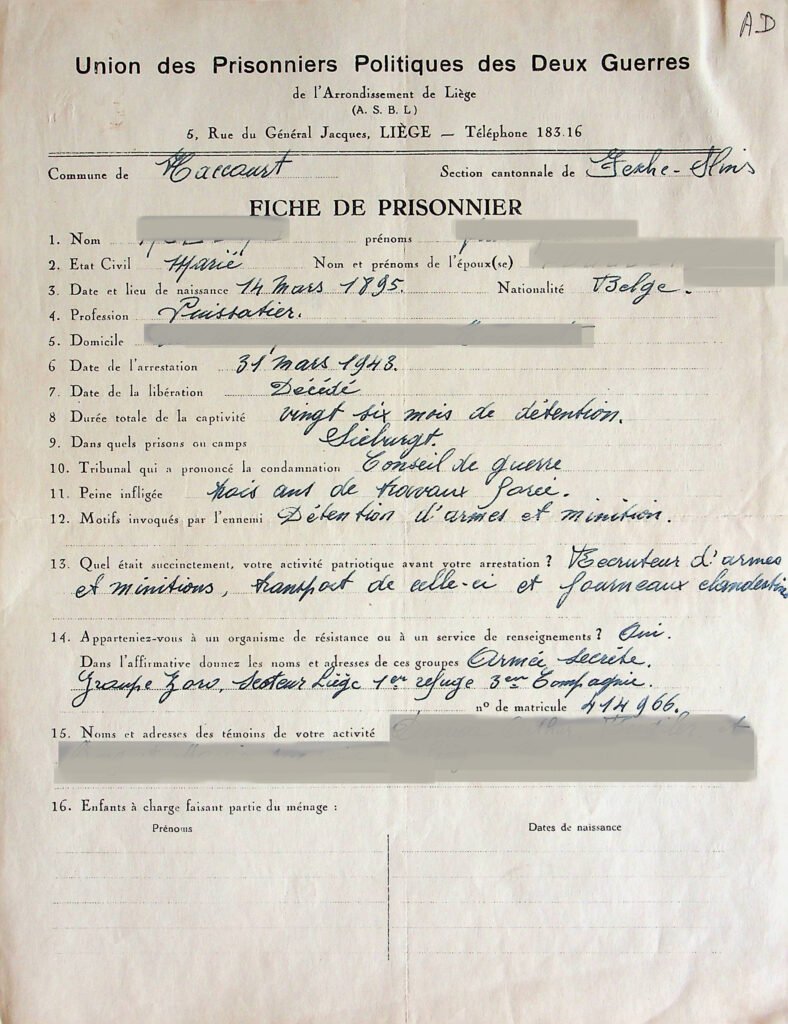 A.D
Union des Prisonniers Politiques des Deux Guerres
de l'Arrondissement de Liège
(A. S. B. L)
5, Rue du Général Jacques, LIÈGE — Téléphone 183.16
Commune de Haccourt Section cantonale de Fexhe-Slins
FICHE DE PRISONNIER
1. Nom prénoms
2. Etat Civil Marié Nom et prénoms de l'époux(se)
3. Date et lieu de naissance 14 Mars 1895. Nationalité Belge.
4. Profession Puissatier.
5. Domicile
6 Date de l'arrestation 31 Mars 1943.
7. Date de la libération Décédé
8 Durée totale de la captivité vingt six mois de détention.
9. Dans quels prisons ou camps Sieburgt.
10. Tribunal qui a prononcé la condamnation Conseil de guerre
11. Peine infligée trois ans de travaux forcé.
12. Motifs invoqués par l'ennemi Détention d'armes et minition.
13. Quel était succinctement, votre activité patriotique avant votre arrestation ? Recruteur d'armes
et minitions, transport de celle-ci et journeaux clandestins
14. Apparteniez-vous à un organisme de résistance ou à un service de renseignements ? Oui.
Dans l'affirmative donnez les noms et adresses de ces groupes Armée secrète.
Groupe Zoro, Secteur Liège 1er refuge 3em Compagnie.
n° de matricule 414966.
15. Noms et adresses des témoins de votre activité
16. Enfants à charge faisant partie du ménage :
Prénoms Dates de naissance